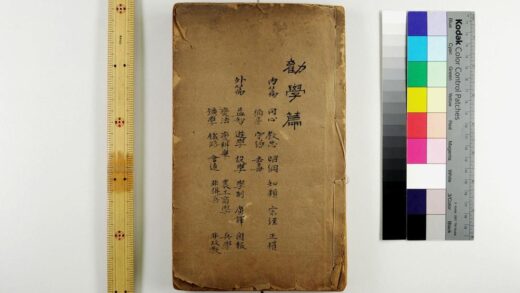 勸學篇
內篇 同心 教忠 明綱 知類 宗經 正權
循序 守約 去毒
外篇 益智 遊學 設學 學制 廣譯 閱報
變法 變科舉 農工商學 兵學
礦學 鐵路 會通 非弭兵 非攻教
Kodak Color Control Patches
Blue
Cyan
Green
Yellow
Red
Magenta
White
3/Color
Black